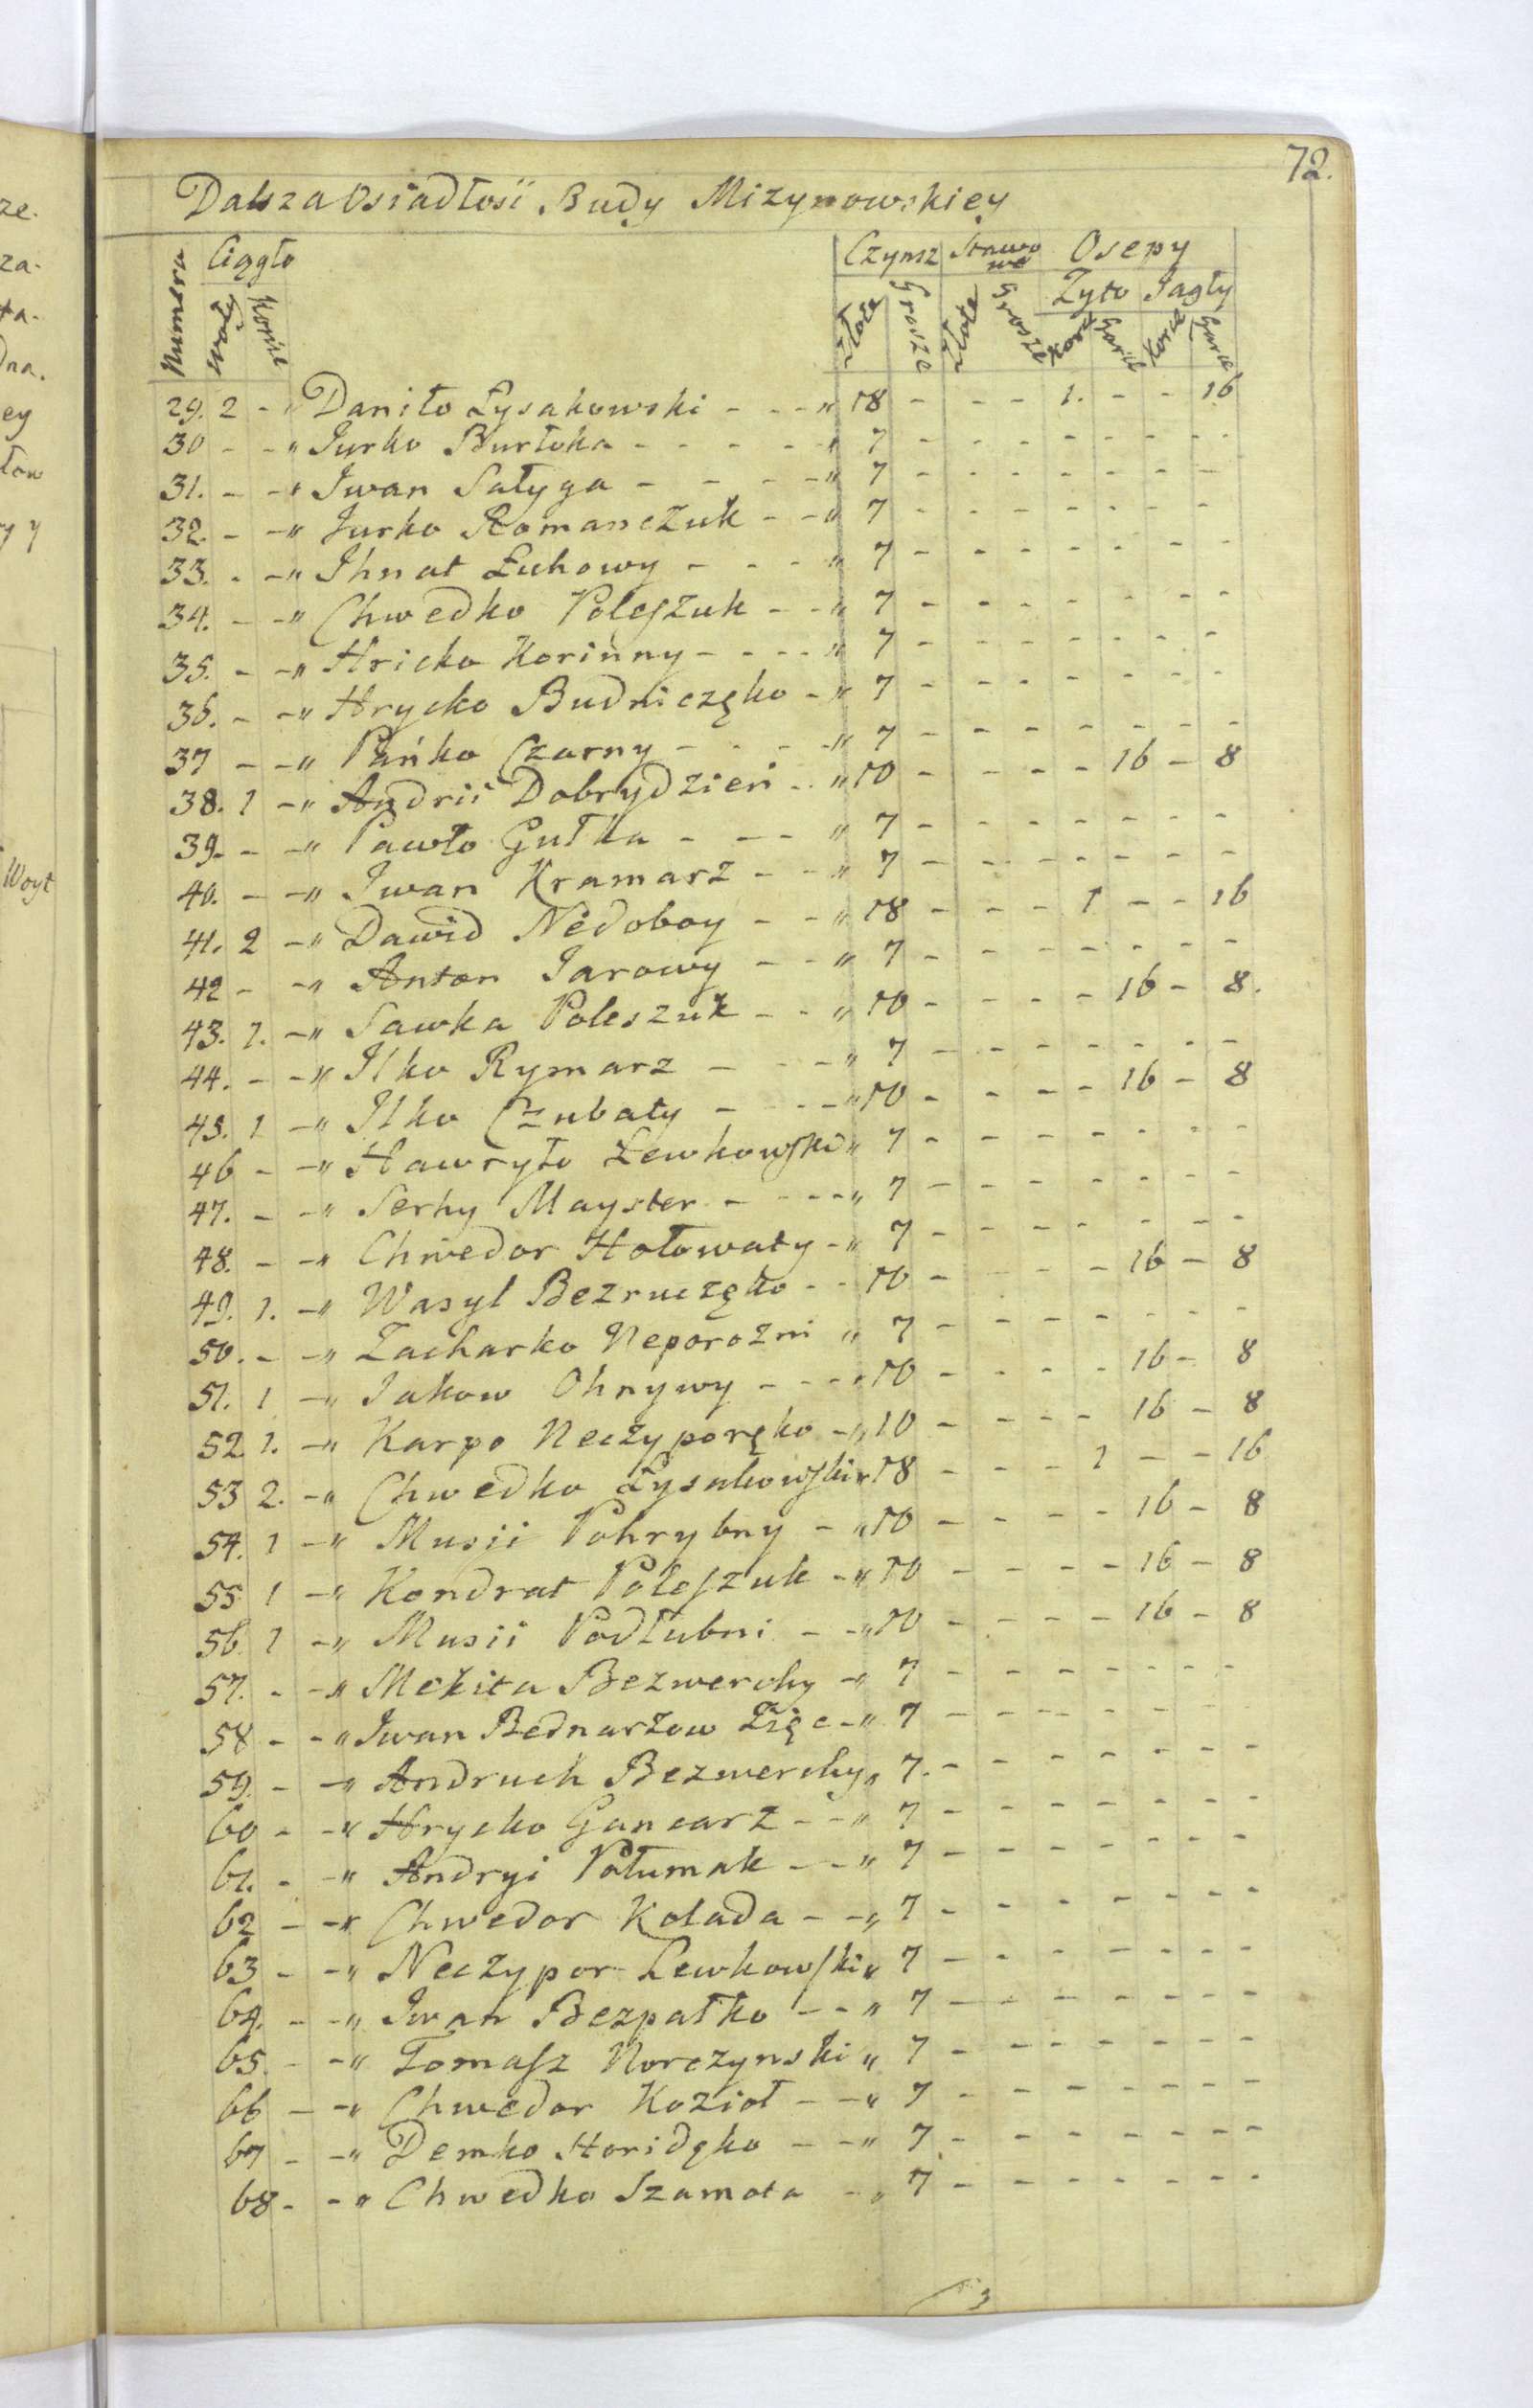 72.
Dalsza Osiadłosi Budy Mizynowskiey
Numera Ciągło Czynsz Stawowe Osepy
Woły Konie Złote Grosze Złote Grosze Żyto Jagły
Korz Garce Korce Garce
29. 2 - " Daniło Łysakowski - - - " 18 - - - 1. - - 16
30 - - " Jurko Burłoka - - - - - " 7 - - - - - - -
31. - - " Iwan Sałyga - - - - " 7 - - - - - - -
32. - - " Jurko Romanczuk - - " 7 - - - - - - -
33. - - " Ihnat Łuhowy - - - " 7 - - - - - - -
34. - - " Chwedko Poleszuk - - " 7 - - - - - - -
35. - - " Hricko Korinny - - - - " 7 - - - - - - -
36. - - " Hrycko Budniczęko - " 7 - - - - - - -
37 - - " Pańko Czarny - - - - " 7 - - - - - - -
38. 1 - " Andrii Dobrydzień - - " 10 - - - - 16 - 8
39. - - " Pawło Gułka - - - " 7 - - - - - - -
40. - - " Iwan Kramarz - - " 7 - - - - - - -
41. 2 - " Dawid Nedoboy - - " 18 - - - 1 - - 16
42 - - " Anton Jarowy - - " 7 - - - - - - -
43. 1. - " Sawka Poleszuk - - " 10 - - - - 16 - 8.
44. - - " Ilko Rymarz - - - " 7 - - - - - - -
45. 1 - " Ilko Czubaty - - - - " 10 - - - - 16 - 8
46 - - " Hawryło Lewkowski " 7 - - - - - - -
47. - - " Serhy Mayster - - - - " 7 - - - - - - -
48. - - " Chwedor Hołowaty - " 7 - - - - - - -
49. 1. - " Wasyl Bezruczęko - - 10 - - - - 16 - 8
50. - - " Zacharko Neporozni " 7 - - - - - - -
51. 1 - " Jakow Ohnywy - - - " 10 - - - - 16 - 8
52 1. - " Karpo Neczyporęko - " 10 - - - - 16 - 8
53 2. - " Chwedko Łysakowski " 18 - - - 1 - - 16
54. 1 - " Musii Pohrybny - " 10 - - - - 16 - 8
55 1 - " Kondrat Poleszuk - " 10 - - - - 16 - 8
56. 1 - " Musii Podłubni - - " 10 - - - - 16 - 8
57. - - " Mekita Bezwerchy - " 7 - - - - - - -
58 - - " Iwan Bednarzow Zięc - " 7 - - - - -
59. - - " Andruch Bezwerchy " 7. - - - - - - -
60 - - " Hrycko Gancarz - - " 7 - - - - - - -
61. - - " Andryi Połumak - - " 7 - - - - - - -
62 - - " Chwedor Kolada - - " 7 - - - - - - -
63 - - " Neczypor Lewkowski " 7 - - - - - - -
64. - - " Iwan Bezpałko - - " 7 - - - - - - -
65. - - " Tomasz Norczynski " 7 - - - - - - -
66 - - " Chwedor Kozioł - - " 7 - - - - - - -
67 - - " Demko Horidęko - - " 7 - - - - - - -
68 - - " Chwedko Szamota - " 7 - - - - - - -
ze.
za-
ta-
dna.
ey
łow
ry y
Woyt